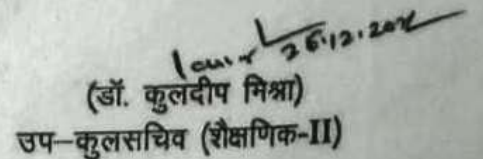 26.12.202
(डॉ. कुलदीप मिश्रा)
उप-कुलसचिव (शैक्षणिक-II)